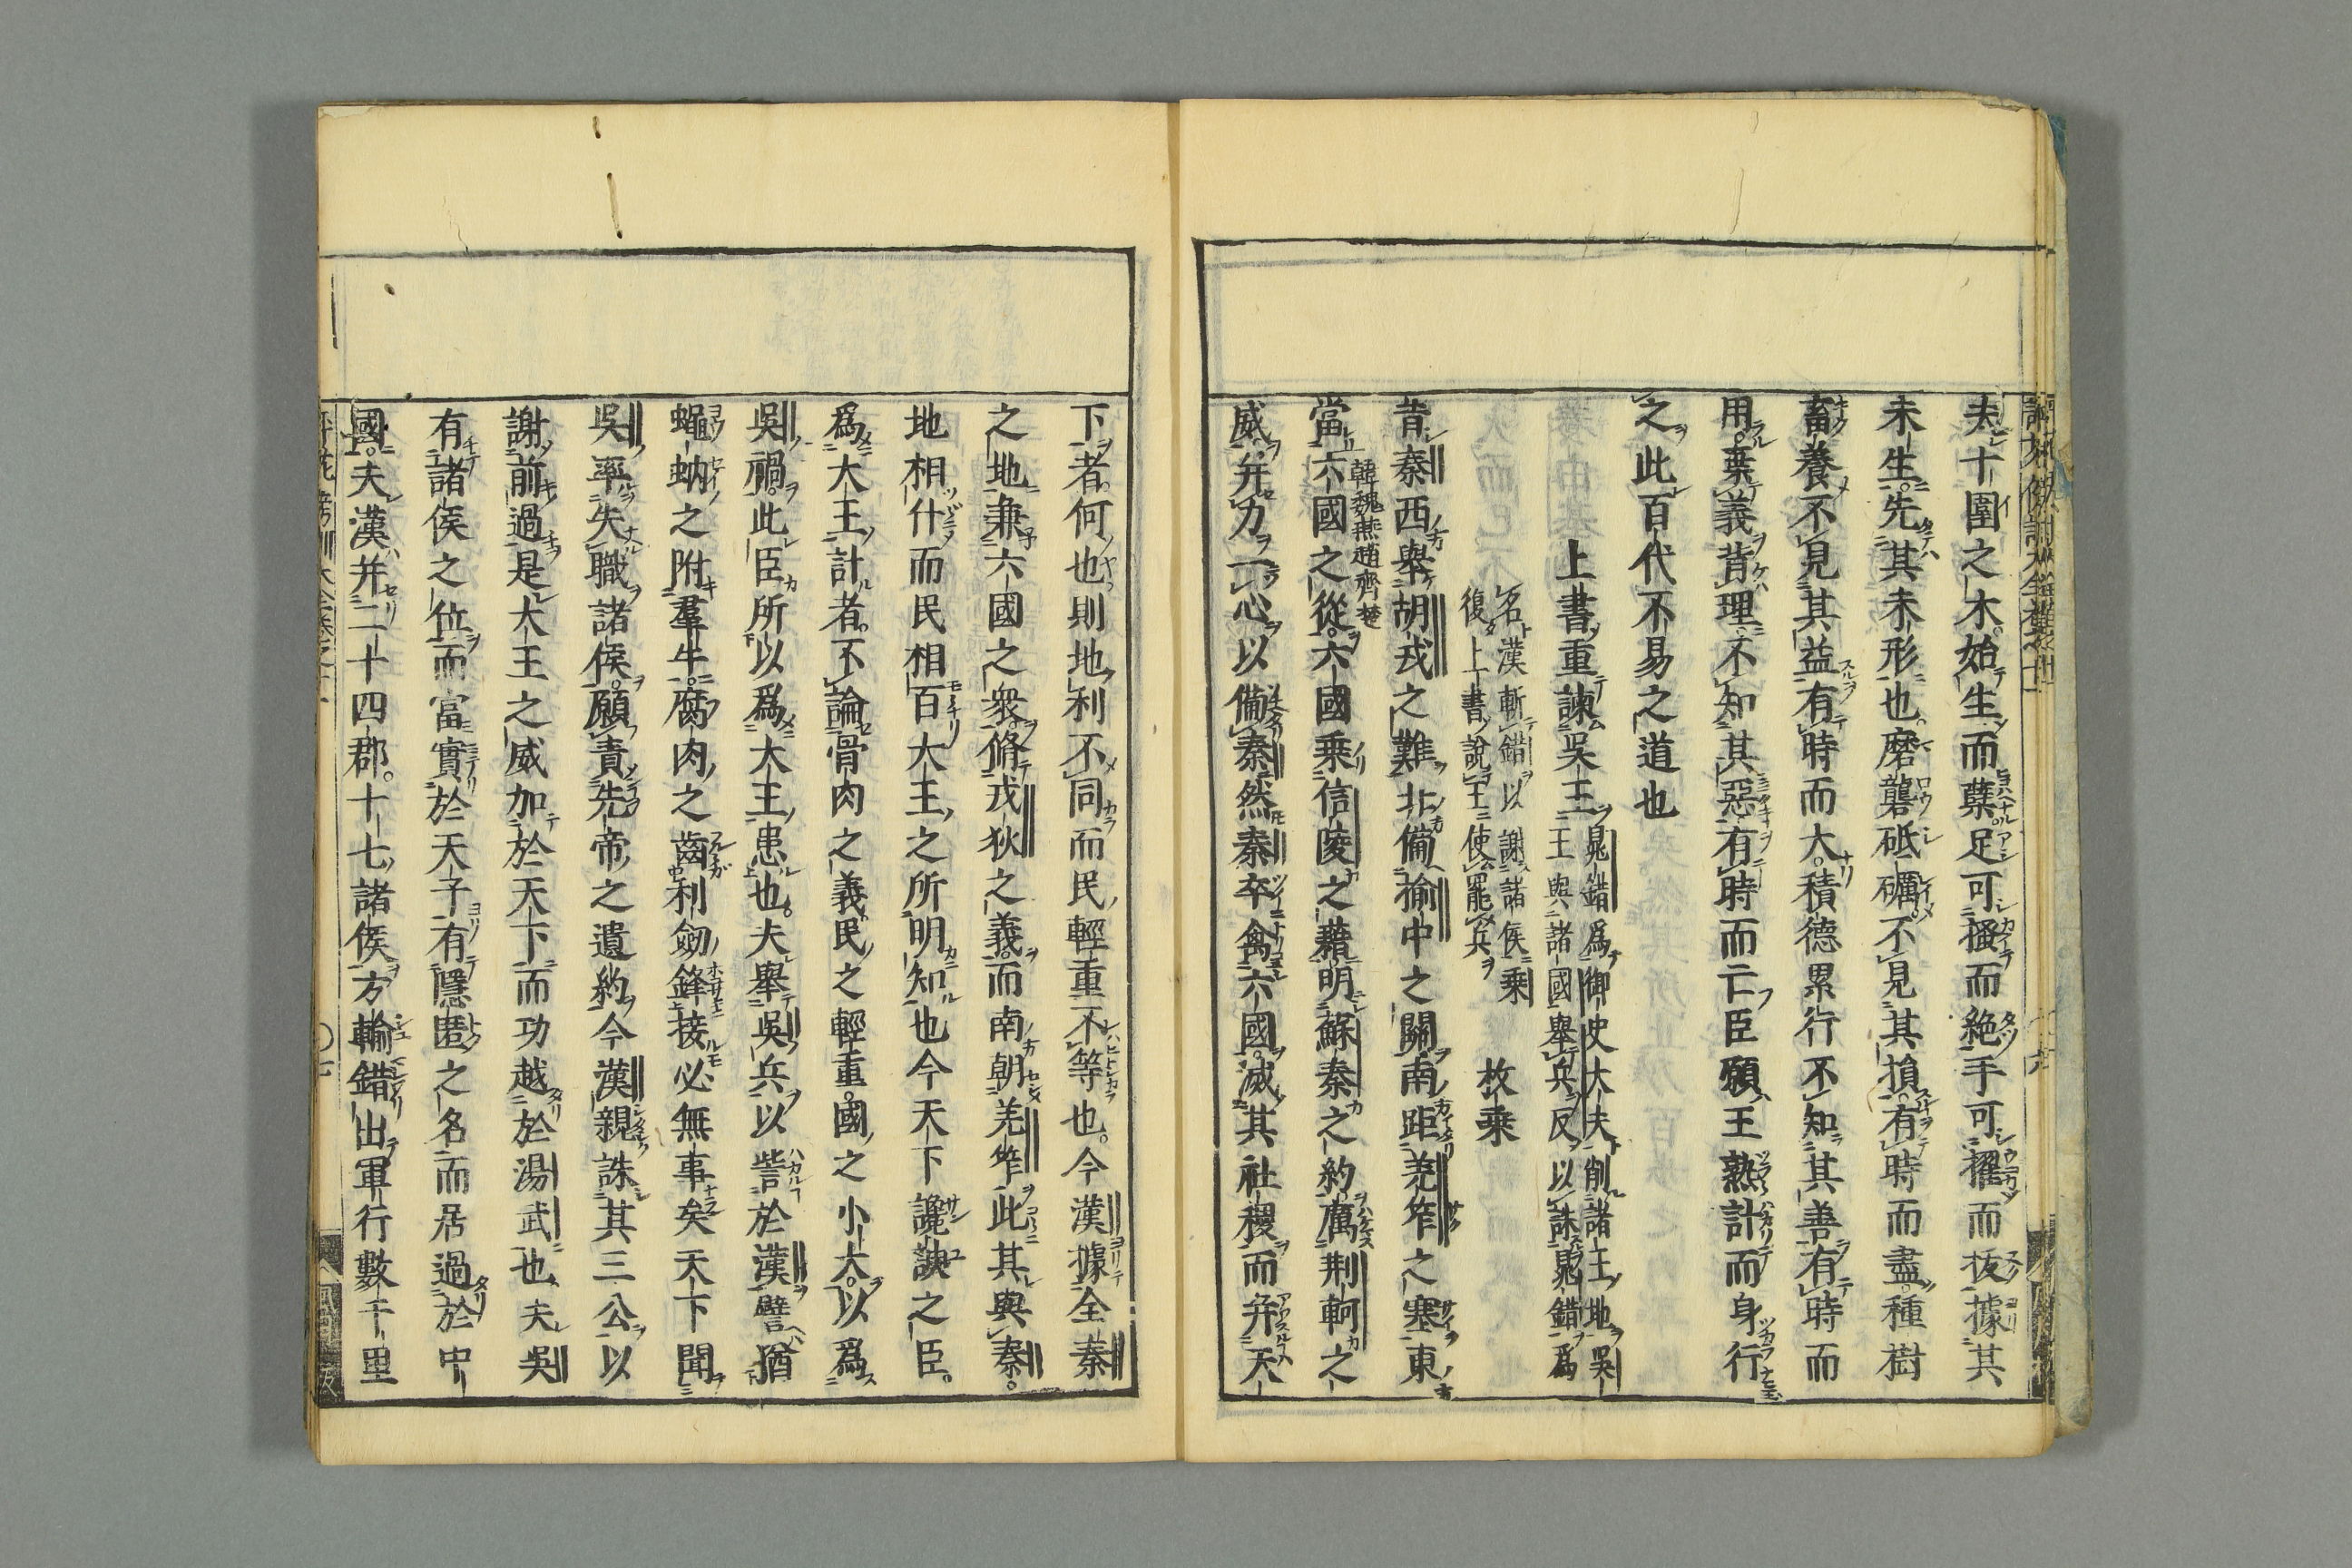 夫十圍之木始生而蘖足可搔而絶手可擢而拔據其
未生先其未形也磨礱砥礪不見其損有時而盡種樹
畜養不見其益有時而大積德累行不知其善有時而
用棄義背理不知其惡有時而亡臣願王熟計而身行
之此百代不易之道也
上書重諫吳王
晁錯爲御史大夫削諸王地吳
王與諸國舉兵反以誅晁錯爲
名漢斬錯以謝諸侯乘
復上書說王使罷兵
枚乘
昔秦西舉胡戎之難北備揄中之關南距羌筰之塞東
當六國之從六國乘信陵之藉明蘇秦之約厲荆軻之
韓魏燕趙齊楚
威并力一心以備秦然秦卒禽六國滅其社稷而并天
下者何也則地利不同而民輕重不等也今漢據全秦
之地兼六國之衆脩戎狄之義而南朝羌筰此其與秦
地相什而民相百大王之所明知也今天下讒諛之臣
爲大王計者不論骨肉之義民之輕重國之小大以爲
吳禍此臣所以爲大王患也夫舉吳兵以訾於漢譬猶
蠅蚋之附羣牛腐肉之齒利劒鋒接必無事矣天下聞
吳率失職諸侯願責先帝之遺約今漢親誅其三公以
謝前過是大王之威加於天下而功越於湯武也夫吳
有諸侯之位而富實於天子有隱匿之名而居過於中
國夫漢并二十四郡十七諸侯方輸錯出軍行數千里